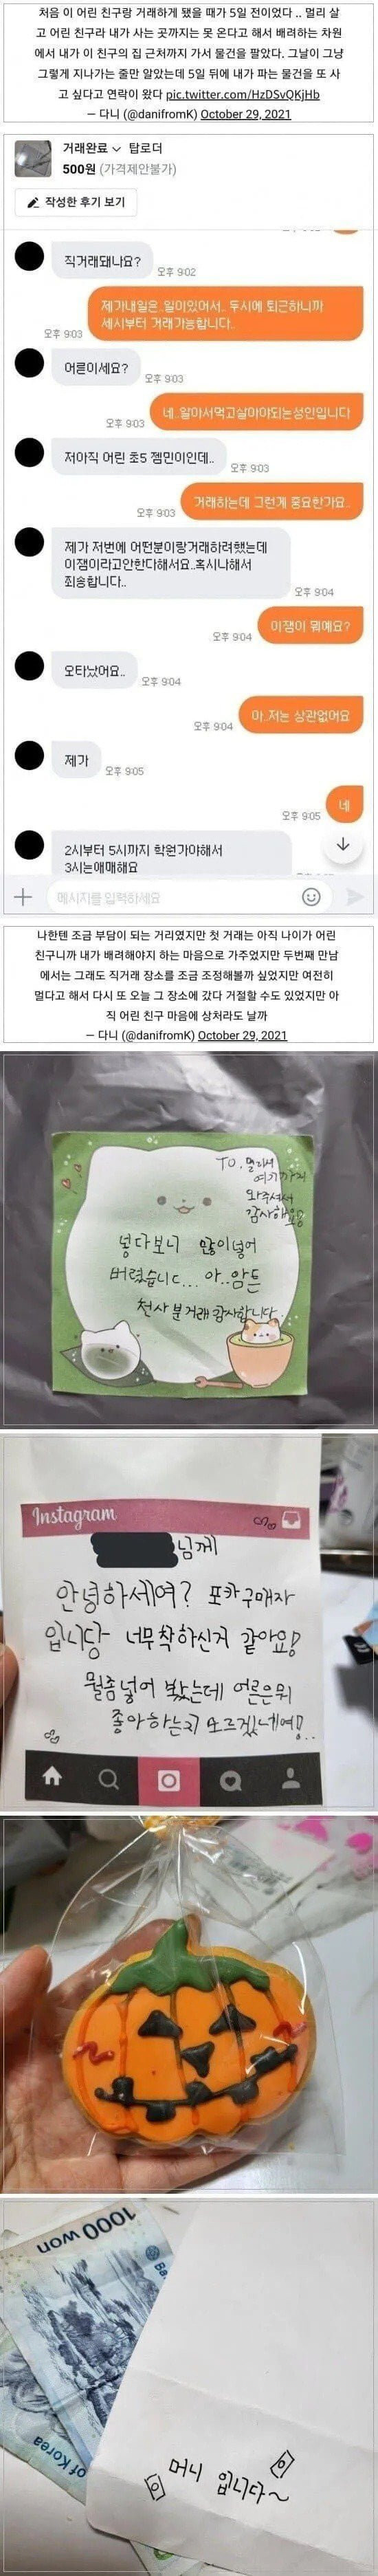 처음 이 어린 친구랑 거래하게 됐을 때가 5일 전이었다 .. 멀리 살
고 어린 친구라 내가 사는 곳까지는 못 온다고 해서 배려하는 차원
에서 내가 이 친구의 집 근처까지 가서 물건을 팔았다. 그날이 그냥
그렇게 지나가는 줄만 알았는데 5일 뒤에 내가 파는 물건을 또 사
고 싶다고 연락이 왔다 pic.twitter.com/HzDSvQKjHb
— 다니 (@danifromK) October 29, 2021
거래완료 탑로더
500원 (가격제안불가)
작성한 후기 보기
직거래돼나요?
오후 9:02
제가내일은..일이있어서.. 두시에 퇴근하니까
세시부터 거래가능합니다..
오후 9:03
어른이세요?
오후 9:03
네..알아서먹고살아야되는성인입니다
오후 9:03
저아직 어린 초5 잼민이인데..
오후 9:03
거래하는데 그런게 중요한가요..
오후 9:03
제가 저번에 어떤분이랑거래하려했는데
이잼이라고안한다해서요..혹시나해서
죄송합니다..
오후 9:04
이잼이 뭐예요?
오후 9:04
오타났어요..
오후 9:04
아..저는 상관없어요
오후 9:04
제가
오후 9:05
네
오후 9:05
2시부터 5시까지 학원가야해서
3시는애매해요
메시지를 입력하세요
나한텐 조금 부담이 되는 거리였지만 첫 거래는 아직 나이가 어린
친구니까 내가 배려해야지 하는 마음으로 가주었지만 두번째 만남
에서는 그래도 직거래 장소를 조금 조정해볼까 싶었지만 여전히
멀다고 해서 다시 또 오늘 그 장소에 갔다 거절할 수도 있었지만 아
직 어린 친구 마음에 상처라도 날까
— 다니 (@danifromK) October 29, 2021
TO. 멀리서
여기까지
와주셔서
감사해요
넣다보니 많이넣어
버렸습니다... 아..암튼
천사분거래 감사합니다.
Instagram
님께
안녕하세여? 포카구매자
입니당~ 너무착하신거 같아요!
뭘좀넣어 봤는데 어른은뭐
좋아하는지 모르겠네여!..
1000 won
Ba
of Korea
머니 입니다~